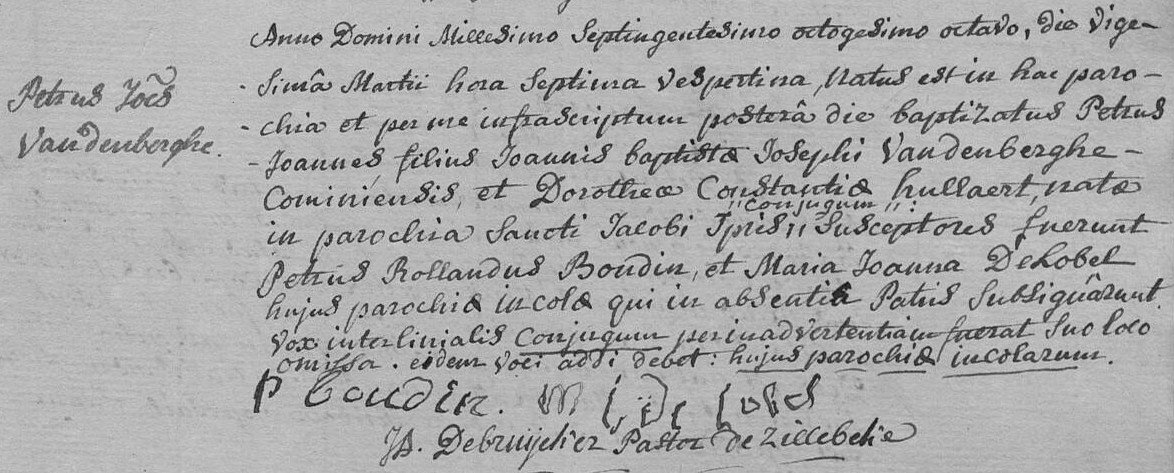 Anno Domini Millesimo Septingentesimo octogesimo octavo, die vige-
Petrus Joēs
Vandenberghe.
- simâ Martii hora Septima vespertina, natus est in hac paro-
- chia et per me infrascriptum posterâ die baptizatus Petrus
- Joannes, filius Joannis baptistæ Josephi Vandenberghe -
Cominiensis, et Dorotheæ Constantiæ hullaert, natæ
"conjugum":
in parochia Sancti Jacobi Ipris,, Susceptores fuerunt
Petrus Rollandus Boudin, et Maria Joanna DeLobel
hujus parochiæ incolæ qui in absentia Patris Subsignârunt.
vox interlinialis Conjugum per inadvertentiam fuerat Suo loco
omissa. eidem voci addi debet: hujus parochiæ incolarum.
P Boudin. M
JB. Debruijcker Pastor de Zillebeke